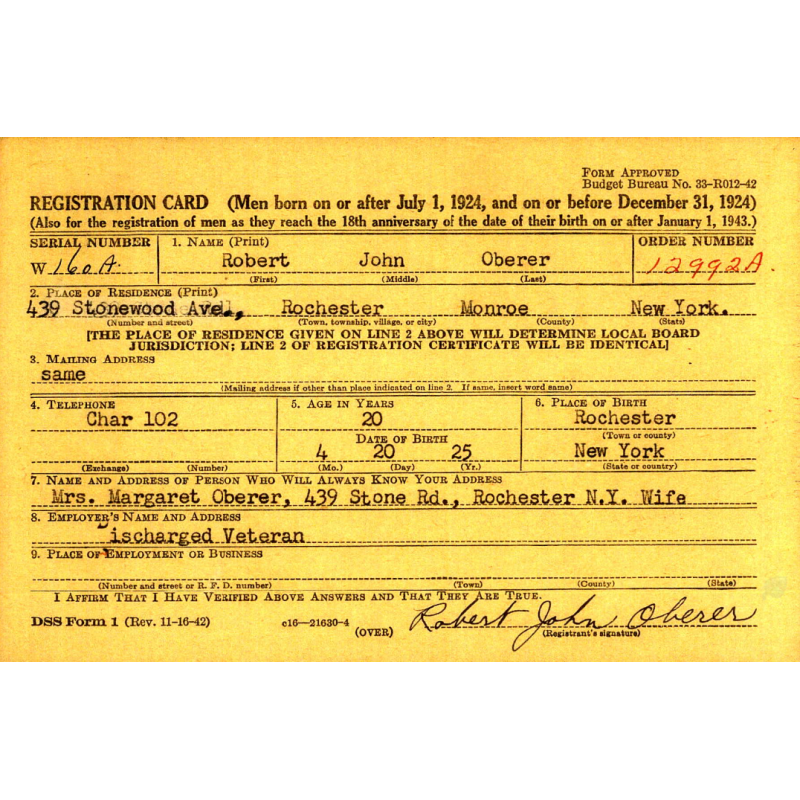 FORM APPROVED
Budget Bureau No. 33–R012–42
REGISTRATION CARD (Men born on or after July 1, 1924, and on or before December 31, 1924)
(Also for the registration of men as they reach the 18th anniversary of the date of their birth on or after January 1, 1943.)
SERIAL NUMBER 1. NAME (Print) ORDER NUMBER
W 160A Robert John Oberer 12992A.
(First) (Middle) (Last)
2. PLACE OF RESIDENCE (Print)
439 Stonewood Ave., Rochester Monroe New York.
(Number and street) (Town, township, village, or city) (County) (State)
[THE PLACE OF RESIDENCE GIVEN ON LINE 2 ABOVE WILL DETERMINE LOCAL BOARD
JURISDICTION; LINE 2 OF REGISTRATION CERTIFICATE WILL BE IDENTICAL]
3. MAILING ADDRESS
same
(Mailing address if other than place indicated on line 2. If same, insert word same)
4. TELEPHONE 5. AGE IN YEARS 6. PLACE OF BIRTH
Char 102 20 Rochester
(Town or county)
DATE OF BIRTH
4 20 25 New York
(Exchange) (Number) (Mo.) (Day) (Yr.) (State or country)
7. NAME AND ADDRESS OF PERSON WHO WILL ALWAYS KNOW YOUR ADDRESS
Mrs. Margaret Oberer, 439 Stone Rd., Rochester N.Y. Wife
8. EMPLOYER'S NAME AND ADDRESS
Discharged Veteran
9. PLACE OF EMPLOYMENT OR BUSINESS
(Number and street or R. F. D. number) (Town) (County) (State)
I AFFIRM THAT I HAVE VERIFIED ABOVE ANSWERS AND THAT THEY ARE TRUE.
DSS Form 1 (Rev. 11-16-42) c16—21630-4 (OVER) Robert John Oberer
(Registrant's signature)